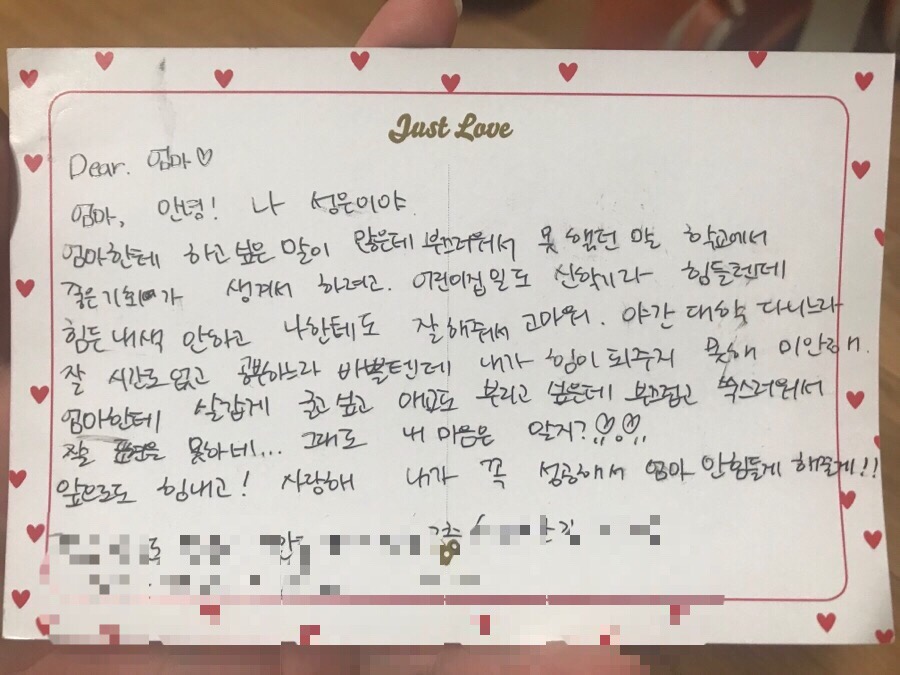 Just Love
Dear. 엄마♡
엄마, 안녕! 나 성은이야
엄마한테 하고 싶은 말이 많은데 부끄러워서 못 했던 말 학교에서
좋은 기회가 생겨서 하려고. 어린이집 일도 신학기라 힘들텐데
힘든 내색 안하고 나한테도 잘 해줘서 고마워. 야간 대학 다니느라
잘 시간도 없고 공부하느라 바쁠텐데 내가 힘이 되주지 못해 미안해.
엄마한테 살갑게 굴고 싶고 애교도 부리고 싶은데 부끄럽고 쑥스러워서
잘 표현을 못하네... 그래도 내 마음은 알지?♡♡♡
앞으로도 힘내고! 사랑해 내가 꼭 성공해서 엄마 안힘들게 해줄게!!